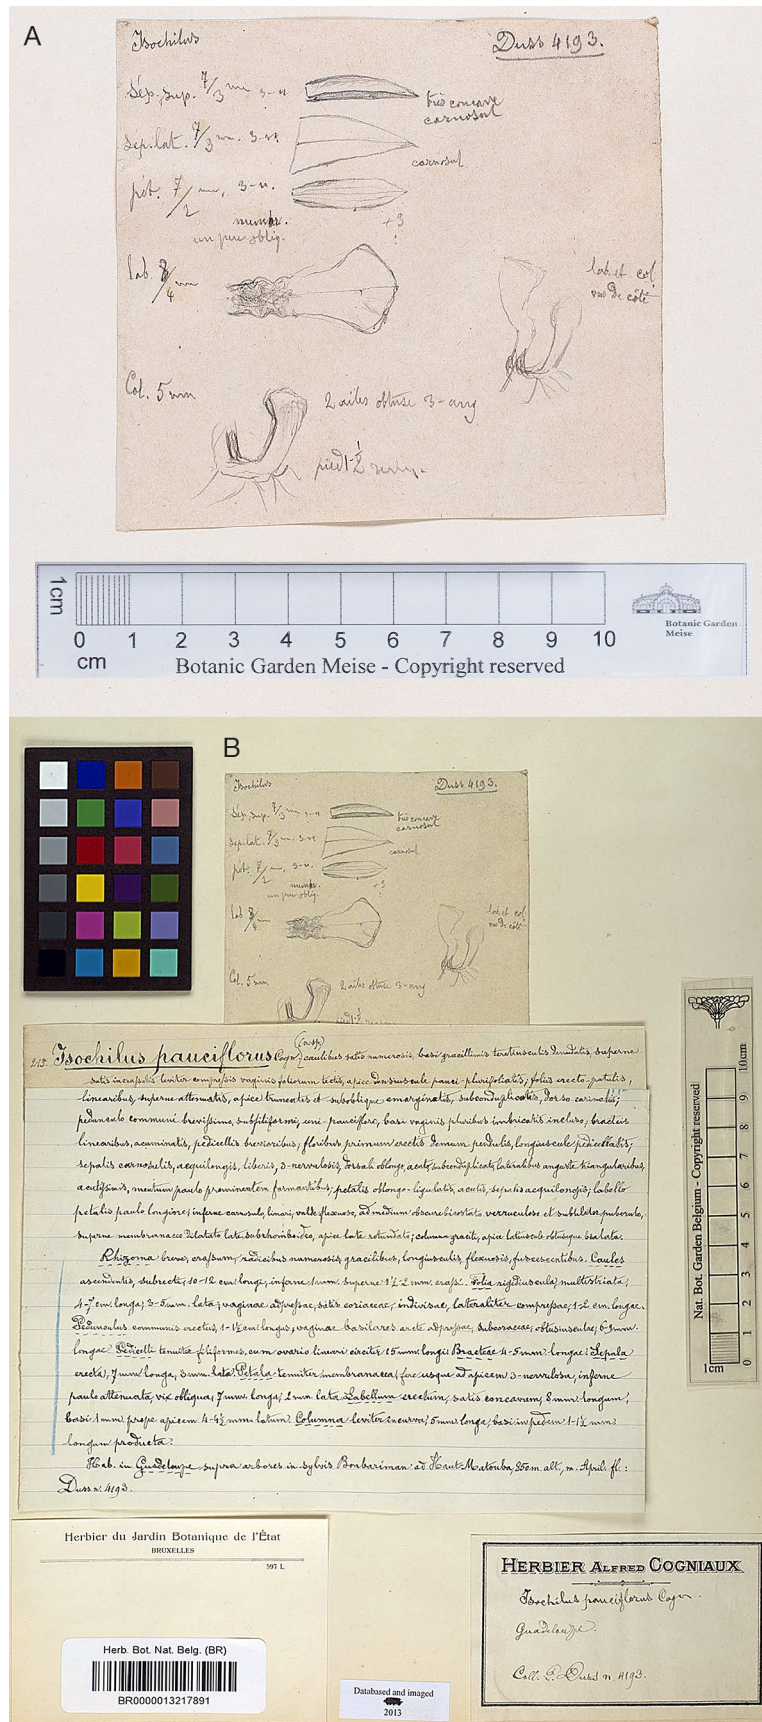 A
Isochilus
Duss 4193.
Sép. sup. 7/3 mm 3-n
très concave
carnosul
Sép. lat. 7/3 mm. 3-n.
carnosul
pét. 7/2 mm, 3-n.
membr.
un peu obliq.
+3
lab. 8/4 mm
lab. et col.
vus de côté
Col. 5 mm
2 ailes obtuse 3-ang
pied 1-1/2
1cm
0 1 2 3 4 5 6 7 8 9 10
cm
Botanic Garden Meise - Copyright reserved
Botanic Garden
Meise
B
Isochilus
Duss 4193.
Sép. sup. 7/3 mm 3-n
très concave
carnosul
Sép. lat. 7/3 mm. 3-n
carnosul
pét. 7/2 mm, 3-n.
membr.
un peu obliq.
+3
lab. 8/4 mm
lab. et col.
vus de côté
Col. 5 mm
2 ailes obtuse 3-ang
213. Isochilus pauciflorus Cogn. caulibus satis numerosis, basi gracillimis teretiusculis denudatis, superne
satis incrassatis leviter compressis vaginis foliorum tectis, apice densiuscule pauci-plurifoliatis; foliis erecto-patulis,
linearibus, superne attenuatis, apice truncatis et suboblique emarginatis, subconduplicatis, dorso carinatis;
pedunculo communi brevissimo, subfiliformi, uni-paucifloro, basi vaginis pluribus imbricatis incluso; bracteis
linearibus, acuminatis, pedicellis brevioribus; floribus primum erectis demum pendulis, longiuscule pedicellatis;
sepalis carnosulis, aequilongis, liberis, 3-nervulosis, dorsali oblongo, acuto, subconduplicato, lateralibus anguste triangularibus,
acutissimis, mentum paulo prominentem formantibus; petalis oblongo-ligulatis, acutis, sepalis aequilongis; labello
petalis paulo longiore, inferne carnosulo, lineari, valde flexuoso, ad medium obscure bicostato verruculoso et subtiliter puberulo,
superne membranaceo dilatato late subrhomboideo, apice late rotundato; columna gracili, apice latiuscule obtuseque bialata.
Rhizoma breve, crassum, radicibus numerosis, gracilibus, longiusculis, flexuosis, fuscescentibus. Caules
ascendentes, subrecti, 10-12 cm longi, inferne 1 mm. superne 1½-2 mm. crassi. Folia rigidiuscula, multistriata,
4-7 cm longa, 3-5 mm. lata; vaginae adpressae, satis coriaceae, indivisae, lateraliter compressae, 1-2 cm. longae.
Pedunculus communis erectus, 1-1½ cm longus; vaginae basilares arcte adpressae, subcoriaceae, obtusiusculae, 6-8 mm.
longae. Pedicelli tenuiter filiformes, cum ovario lineari circiter 15 mm. longi. Bracteae 4-5 mm. longae. Sepala
erecta, 7 mm. longa, 3 mm. lata. Petala tenuiter membranacea, fere usque ad apicem 3-nervulosa, inferne
paulo attenuata, vix obliqua, 7 mm. longa, 2 mm. lata. Labellum erectum, satis concavum, 8 mm. longum,
basi 1 mm. prope apicem 4-4½ mm. latum. Columna leviter incurva, 5 mm. longa, basi in pedem 1-1½ mm.
longum producta.
Hab. in Guadeloupe supra arbores in sylvis Bonbariman ad Haut-Matouba, 950 m. alt., m. April. fl.:
Duss n. 4193.
0 1 2 3 4 5 6 7 8 9 10cm
1cm
Nat. Bot. Garden Belgium - Copyright reserved
Herbier du Jardin Botanique de l'État
BRUXELLES
597 I.
Herb. Bot. Nat. Belg. (BR)
BR0000013217891
Databased and imaged
2013
HERBIER ALFRED COGNIAUX
Isochilus pauciflorus Cogn.
Guadeloupe.
Coll. P. Duss n. 4193.